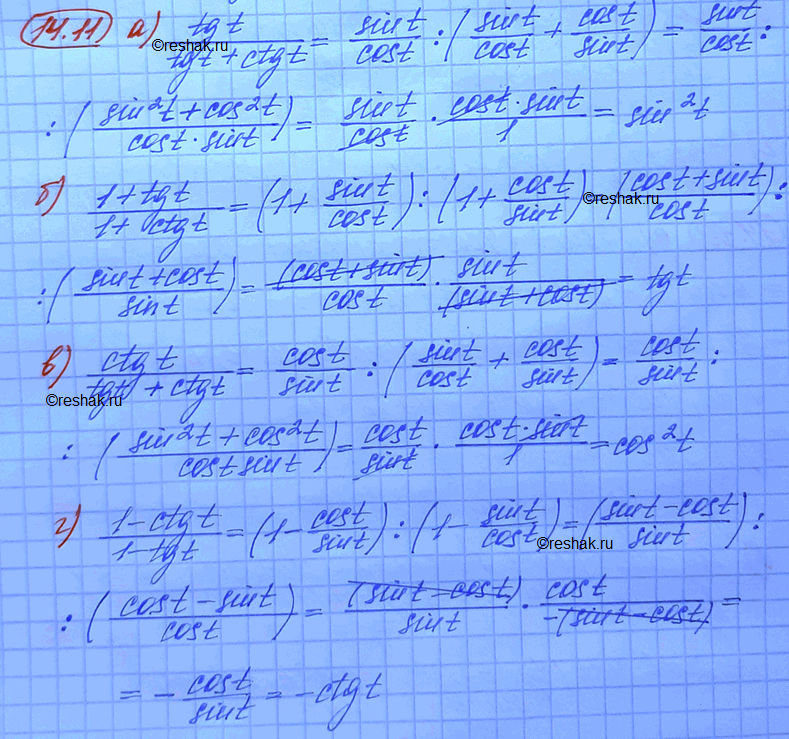 14.11 а) tgt/(tgt + ctgt) = sint/cost : (sint/cost + cost/sint) = sint/cost :
©reshak.ru ©reshak.ru
: ((sin²t + cos²t)/(cost · sint)) = sint/cost · (cost · sint)/1 = sin²t
б) (1+tgt)/(1+ctgt) = (1 + sint/cost) : (1 + cost/sint) ©reshak.ru ((cost + sint)/cost) :
: ((sint + cost)/sint) = (cost + sint)/cost · sint/(sint + cost) = tgt
в) ctgt/(tgt + ctgt) = cost/sint : (sint/cost + cost/sint) = cost/sint :
©reshak.ru
: ((sin²t + cos²t)/(cost sint)) = cost/sint · (cost · sint)/1 = cos²t
г) (1-ctgt)/(1-tgt) = (1 - cost/sint) : (1 - sint/cost) = ((sint - cost)/sint) :
©reshak.ru
: ((cost - sint)/cost) = (sint - cost)/sint · cost/(-(sint - cost)) =
= - cost/sint = -ctgt